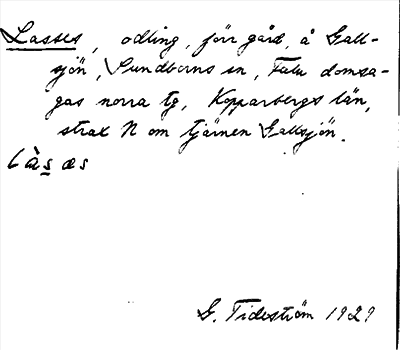 Lasses, odling, förr gård, å Gall-
sjön, Sundborns sn, Falu domsa-
gas norra tg, Kopparbergs län,
strax N om tjärnen Gallsjön.
làsæs
G. Tideström 1929